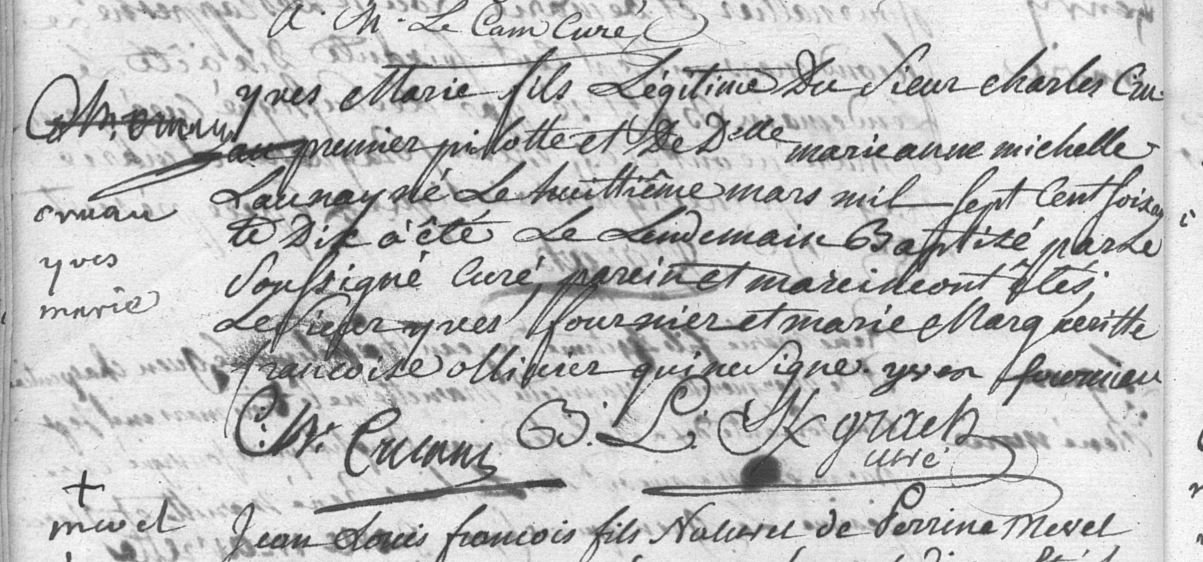 a. M. Le Cam Curé
yves Marie fils Légitime Du Sieur charles Cru-
au premier pilotte et De Dlle marie anne michelle
cruau
Launay né Le huittième mars mil sept Cent soixan
yves
te Dix à été Le Lendemain Baptizé par Le
marie
Soussigné Curé, parein et mareine ont étés
Le sieur yves fournier et marie Margueritte
francoise ollivier qui ne signe. yves fournier
C: M. Cruau B. L.
curé
+
mevel
Jean Louis francois fils Naturel de Perrine Mevel